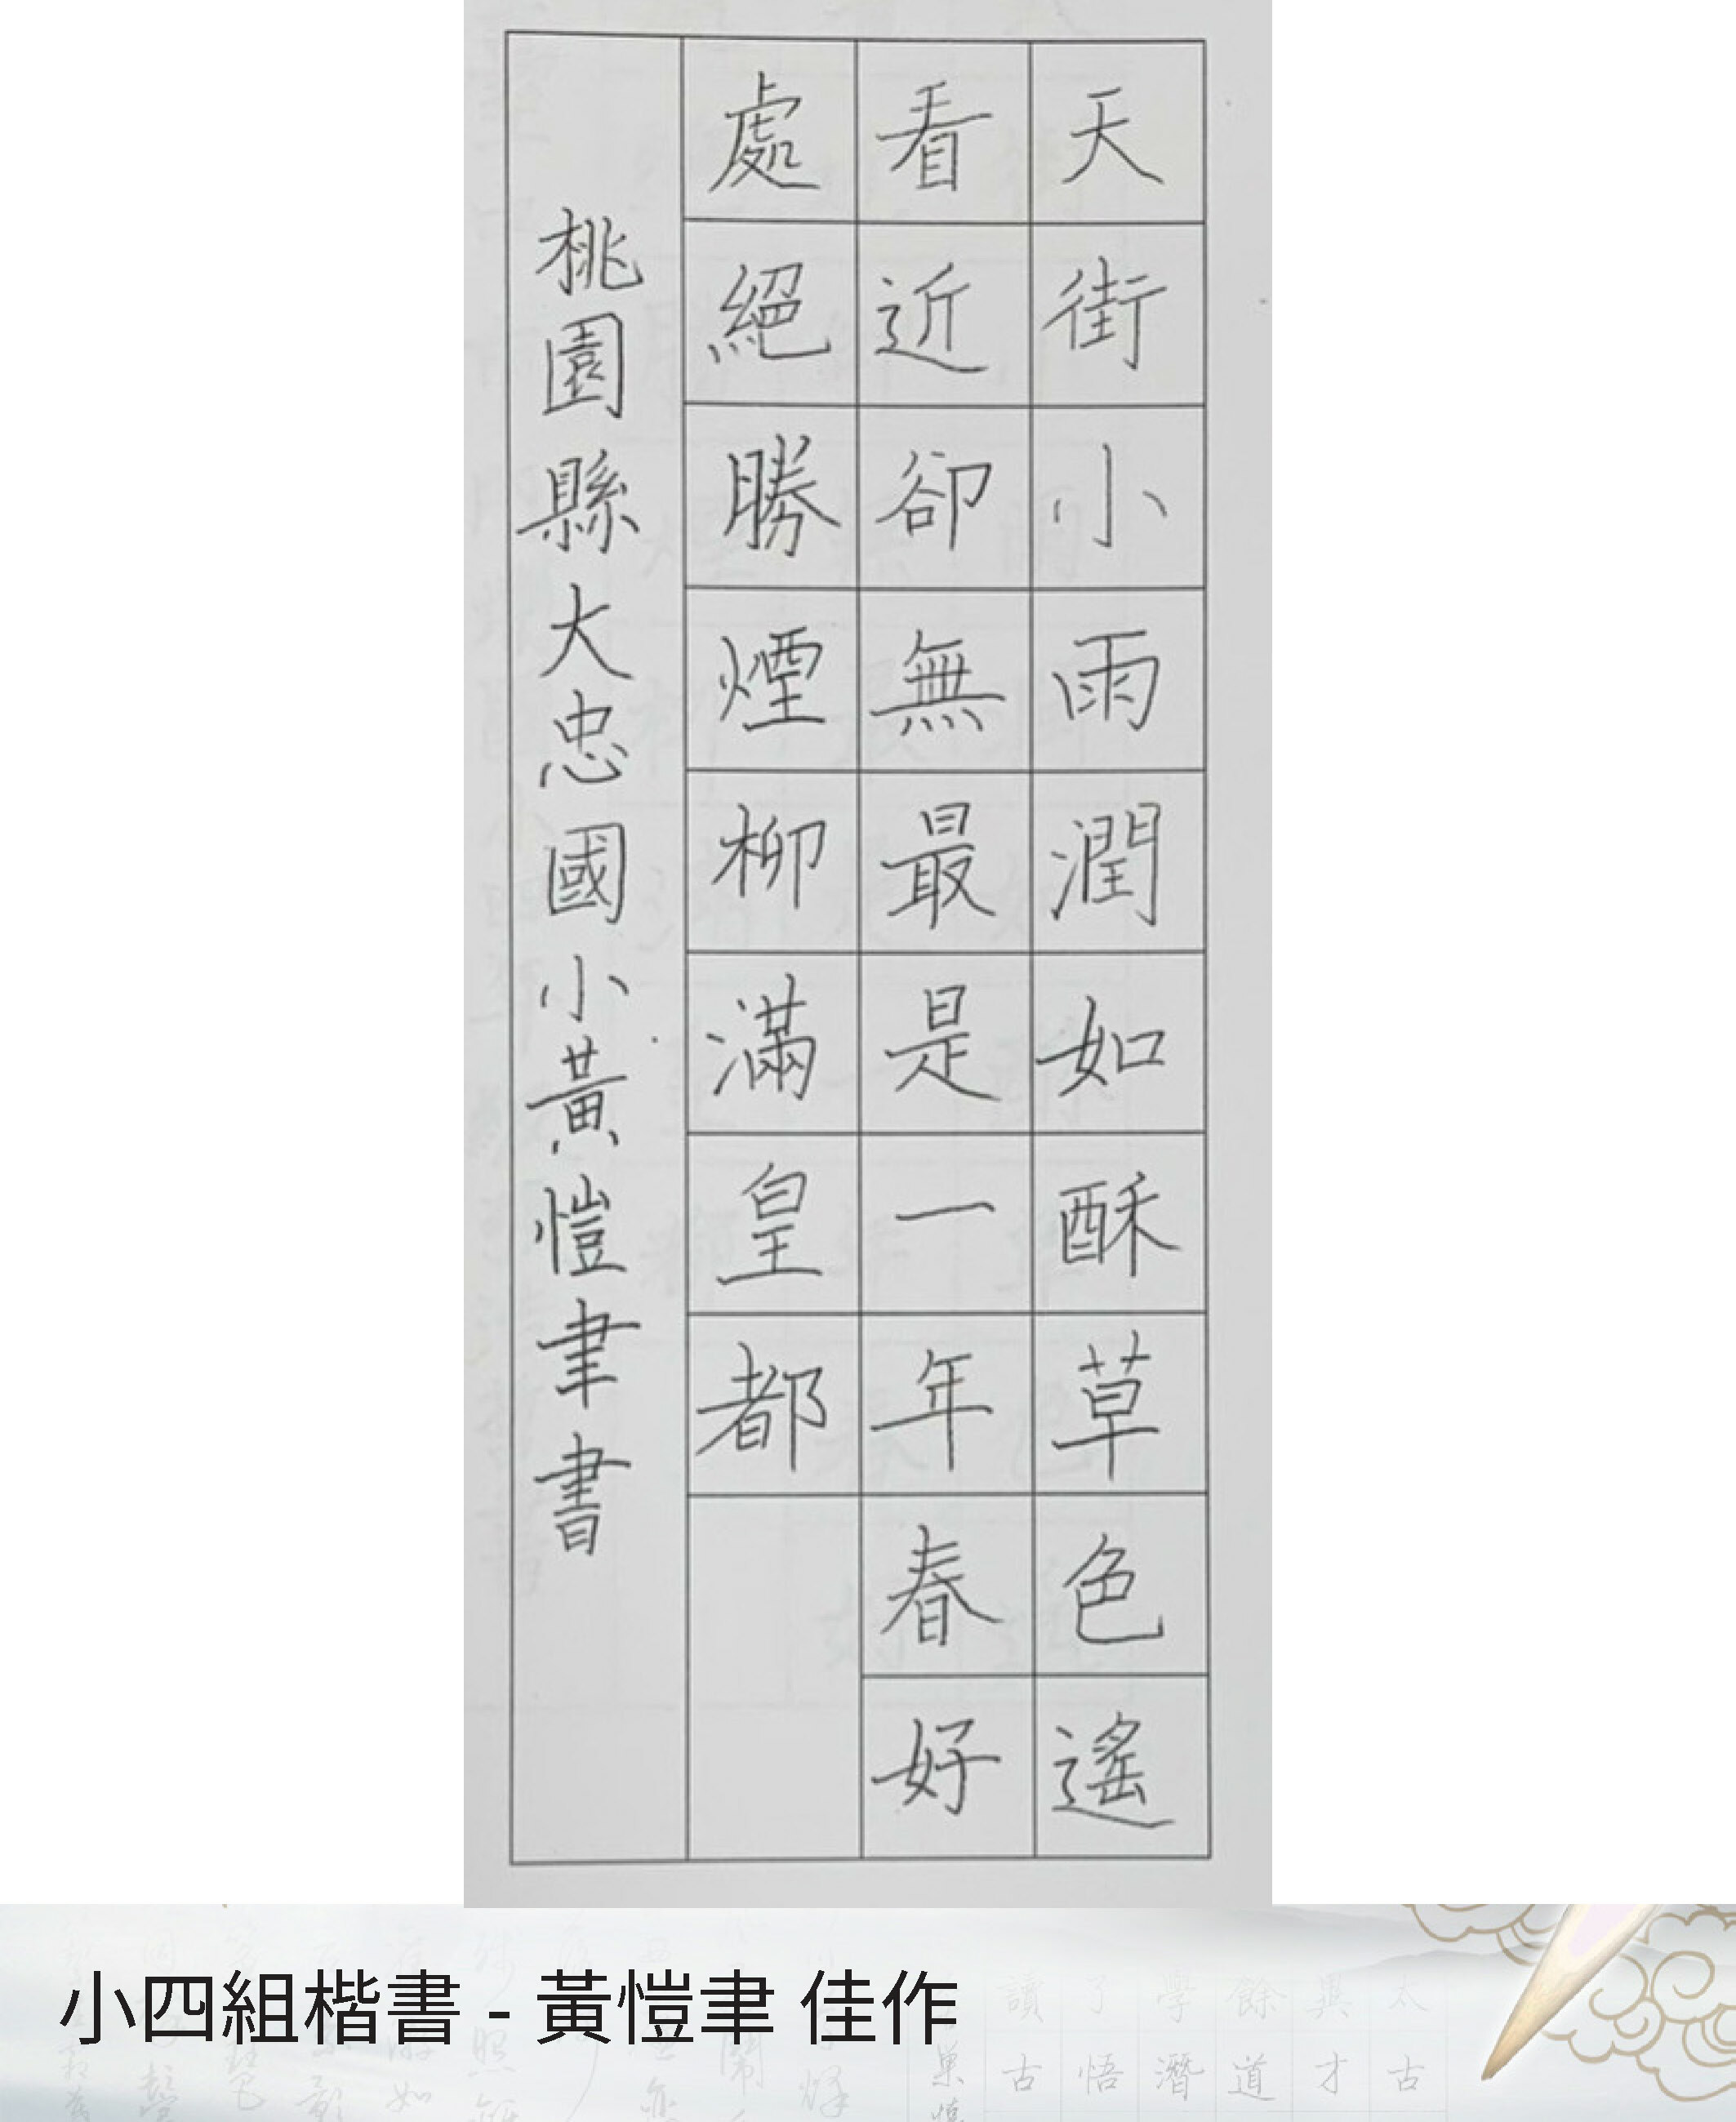 天街小雨潤如酥草色遙
看近卻無最是一年春好
處絕勝煙柳滿皇都
桃園縣大忠國小黃愷聿書
小四組楷書 - 黃愷聿 佳作